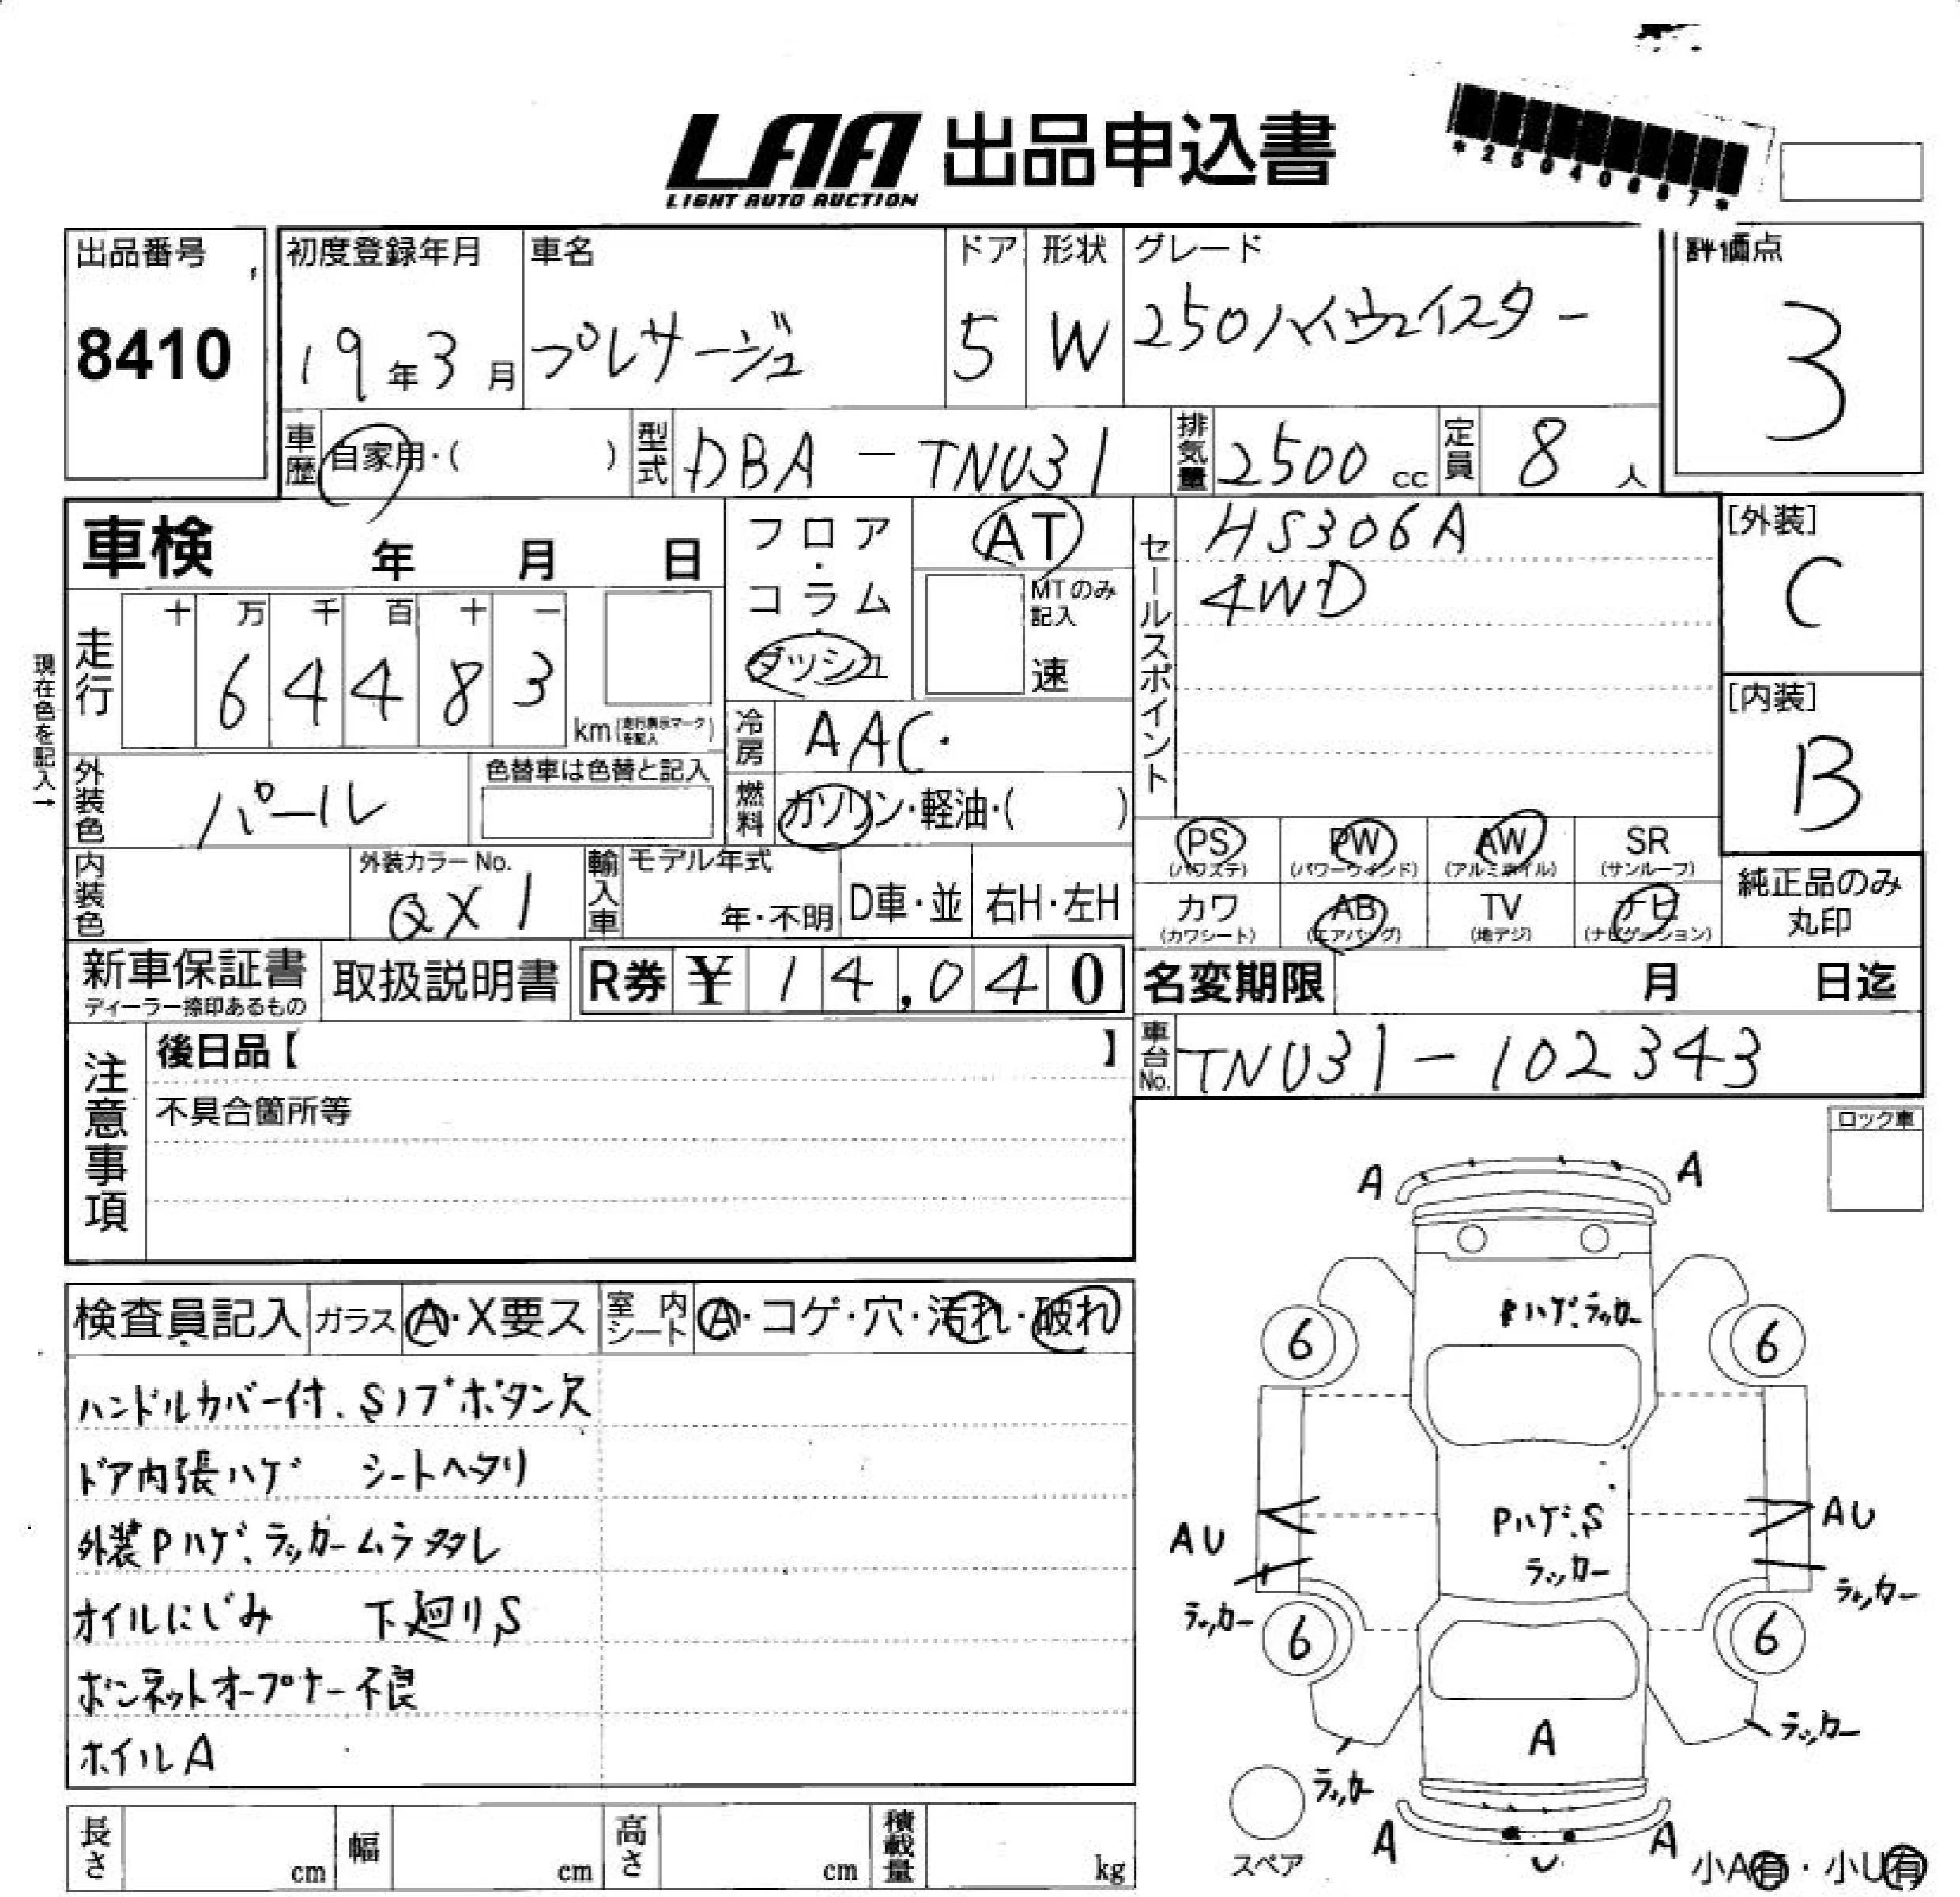 LAA 出品申込書
LIGHT AUTO AUCTION
*2504087*
出品番号
8410
初度登録年月
19年3月
車名
プレサージュ
ドア
5
形状
W
グレード
250ハイウェイスター
評価点
3
車歴
自家用・( )
型式
DBA-TNU31
排気量
2500 cc
定員
8 人
車検 年 月 日
フロア・コラム・ダッシュ
AT
MTのみ記入
速
セールスポイント
HS306A
4WD
[外装]
C
[内装]
B
現在色を記入→
走行
十 万 千 百 十 一
6 4 4 8 3
km(走行表示マークを記入)
冷房
AAC.
外装色
パール
色替車は色替と記入
燃料
ガソリン・軽油・( )
内装色
外装カラーNo.
QX1
輸入車
モデル年式
年・不明
D車・並
右H・左H
PS (パワステ)
PW (パワーウインド)
AW (アルミホイル)
SR (サンルーフ)
カワ (カワシート)
AB (エアバッグ)
TV (地デジ)
ナビ (ナビゲーション)
純正品のみ
丸印
新車保証書
ディーラー捺印あるもの
取扱説明書
R券 ¥ 14,040
名変期限 月 日迄
車台No.
TNU31-102343
注意事項
後日品【 】
不具合箇所等
ロック車
検査員記入
ガラス
A・X要ス
室内シート
A・コゲ・穴・汚れ・破れ
ハンドルカバー付、Sノブボタン欠
ドア内張ハゲ シートヘタリ
外装Pハゲ、ラッカームラタレ
オイルにじみ 下廻りS
ボンネットオープナー不良
ホイルA
A A
Pハゲ、ラッカー
6 6
Pハゲ、S
ラッカー
AU AU
ラッカー ラッカー
6 6
A
ラッカー ラッカー
スペア
A A
U
小A有・小U有
長さ cm
幅 cm
高さ cm
積載量 kg